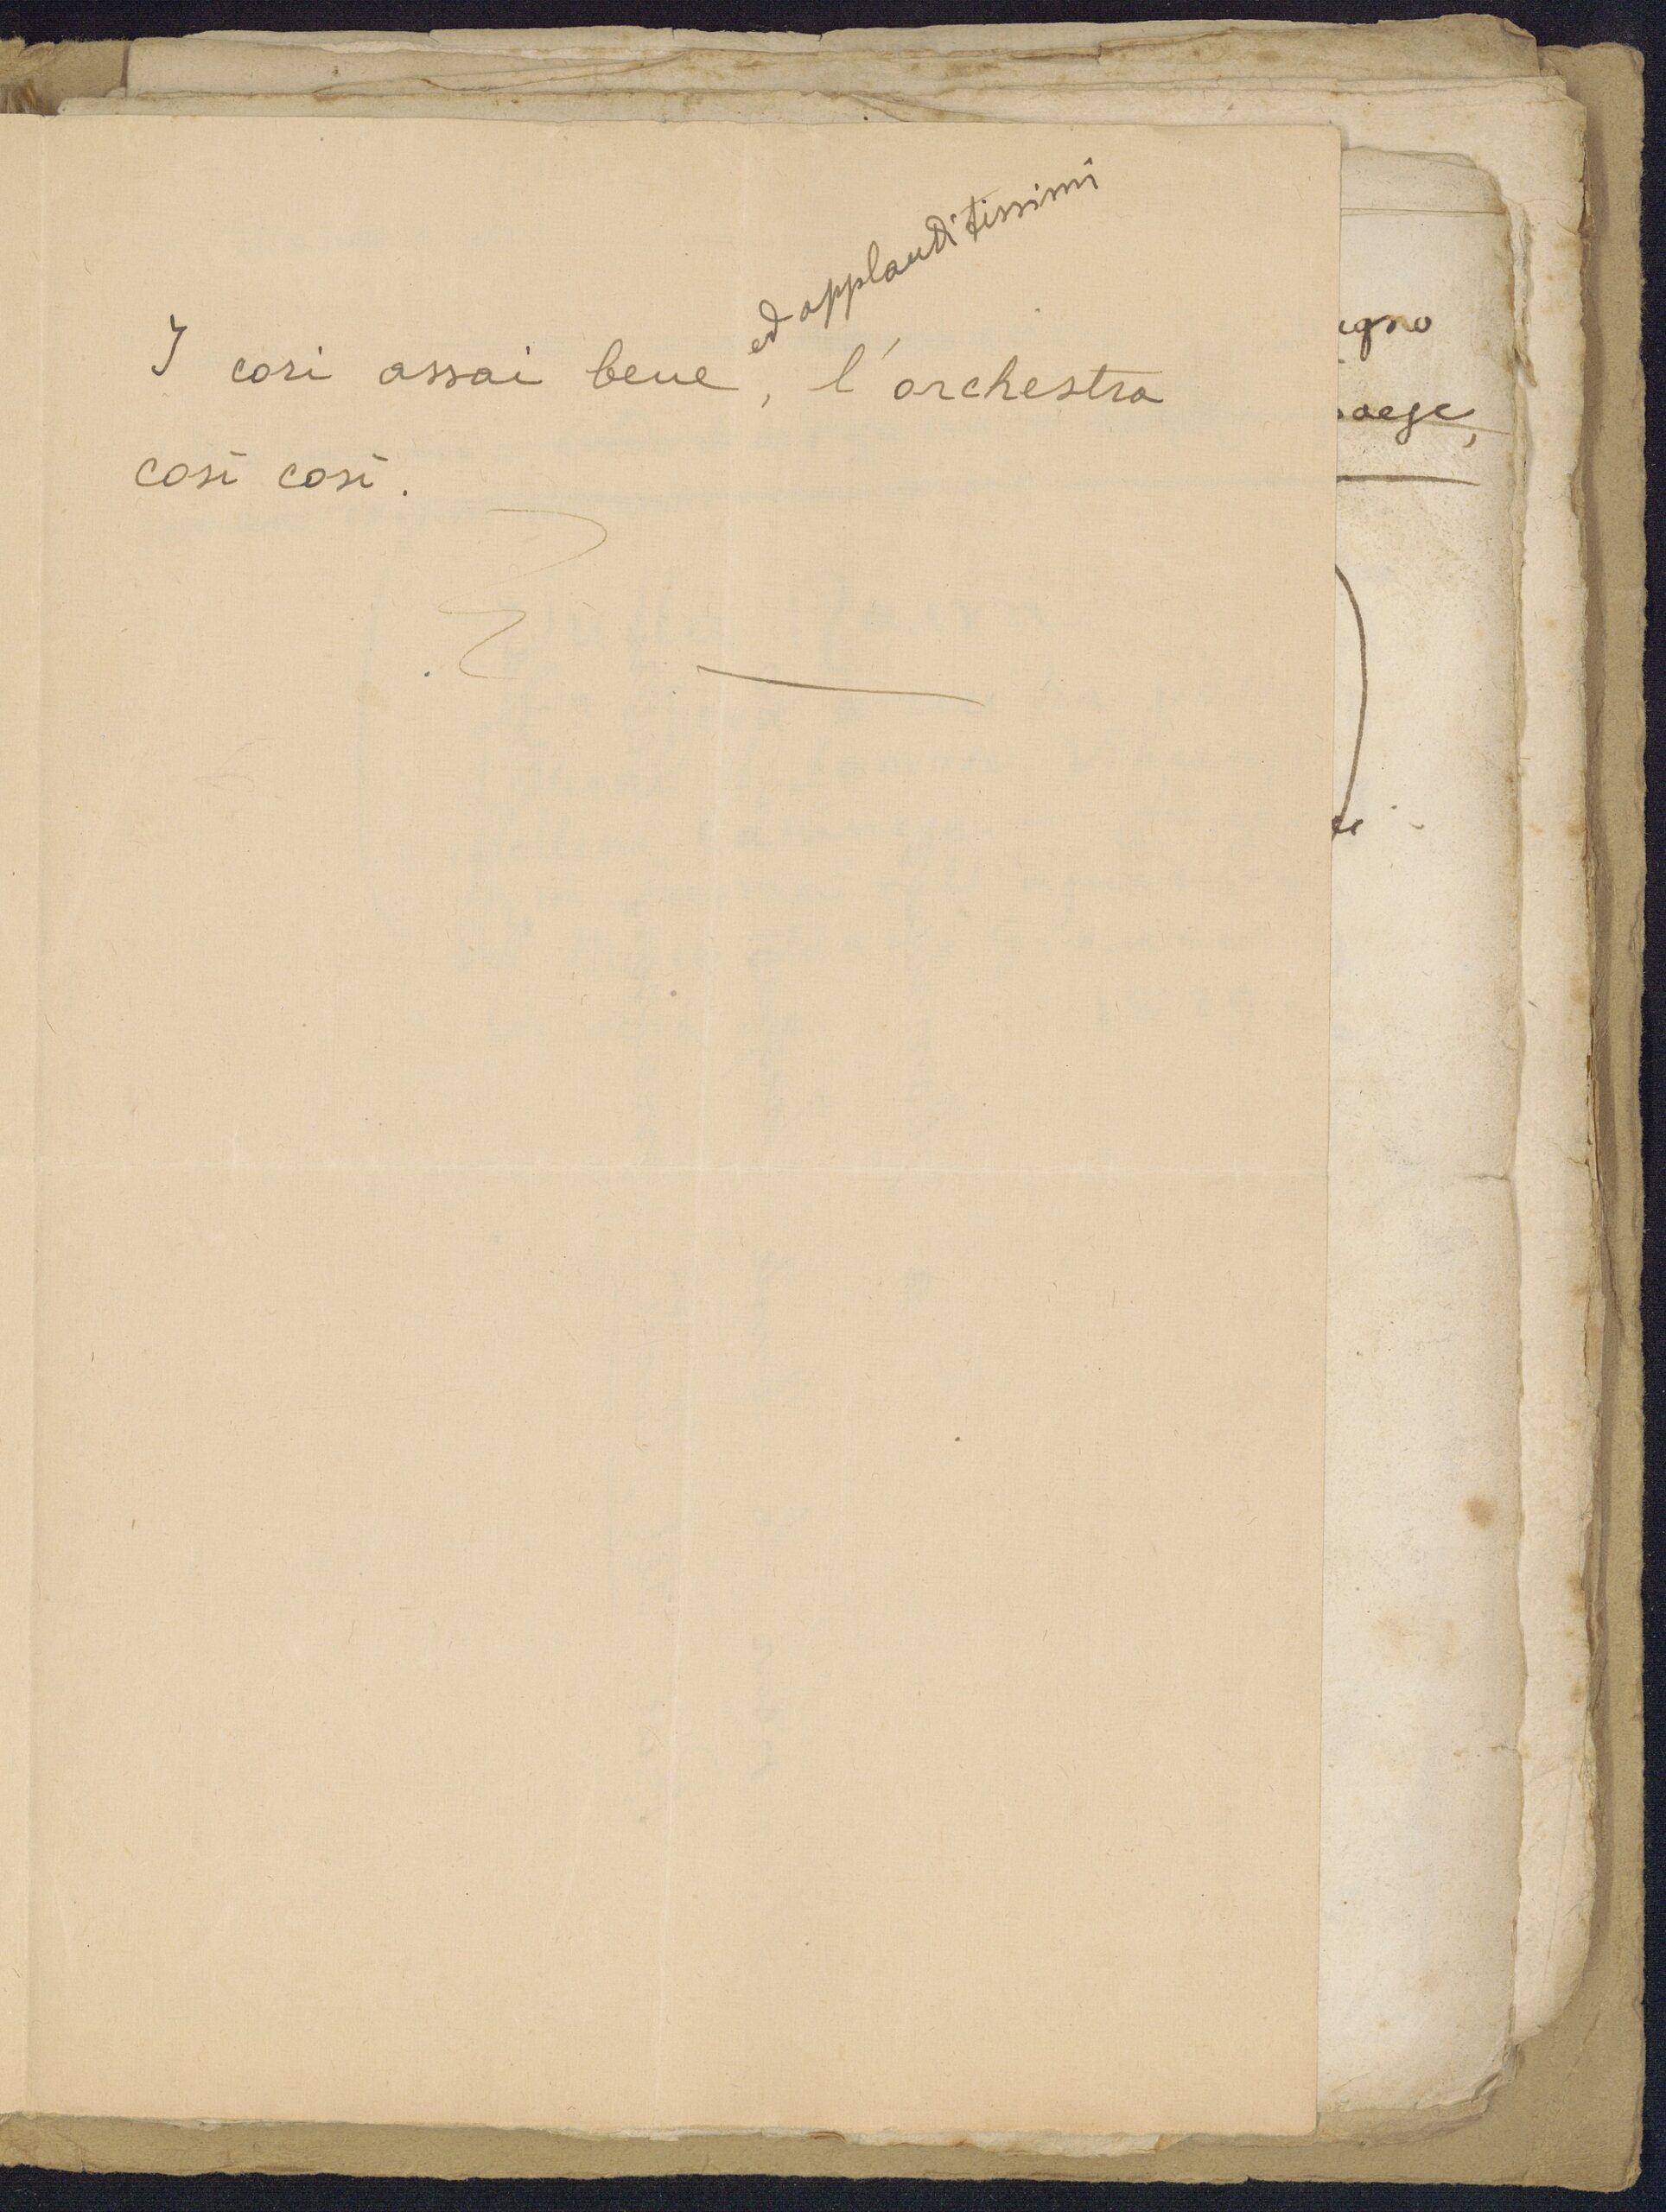 I cori assai bene ed applauditissimi, l'orchestra
così così.